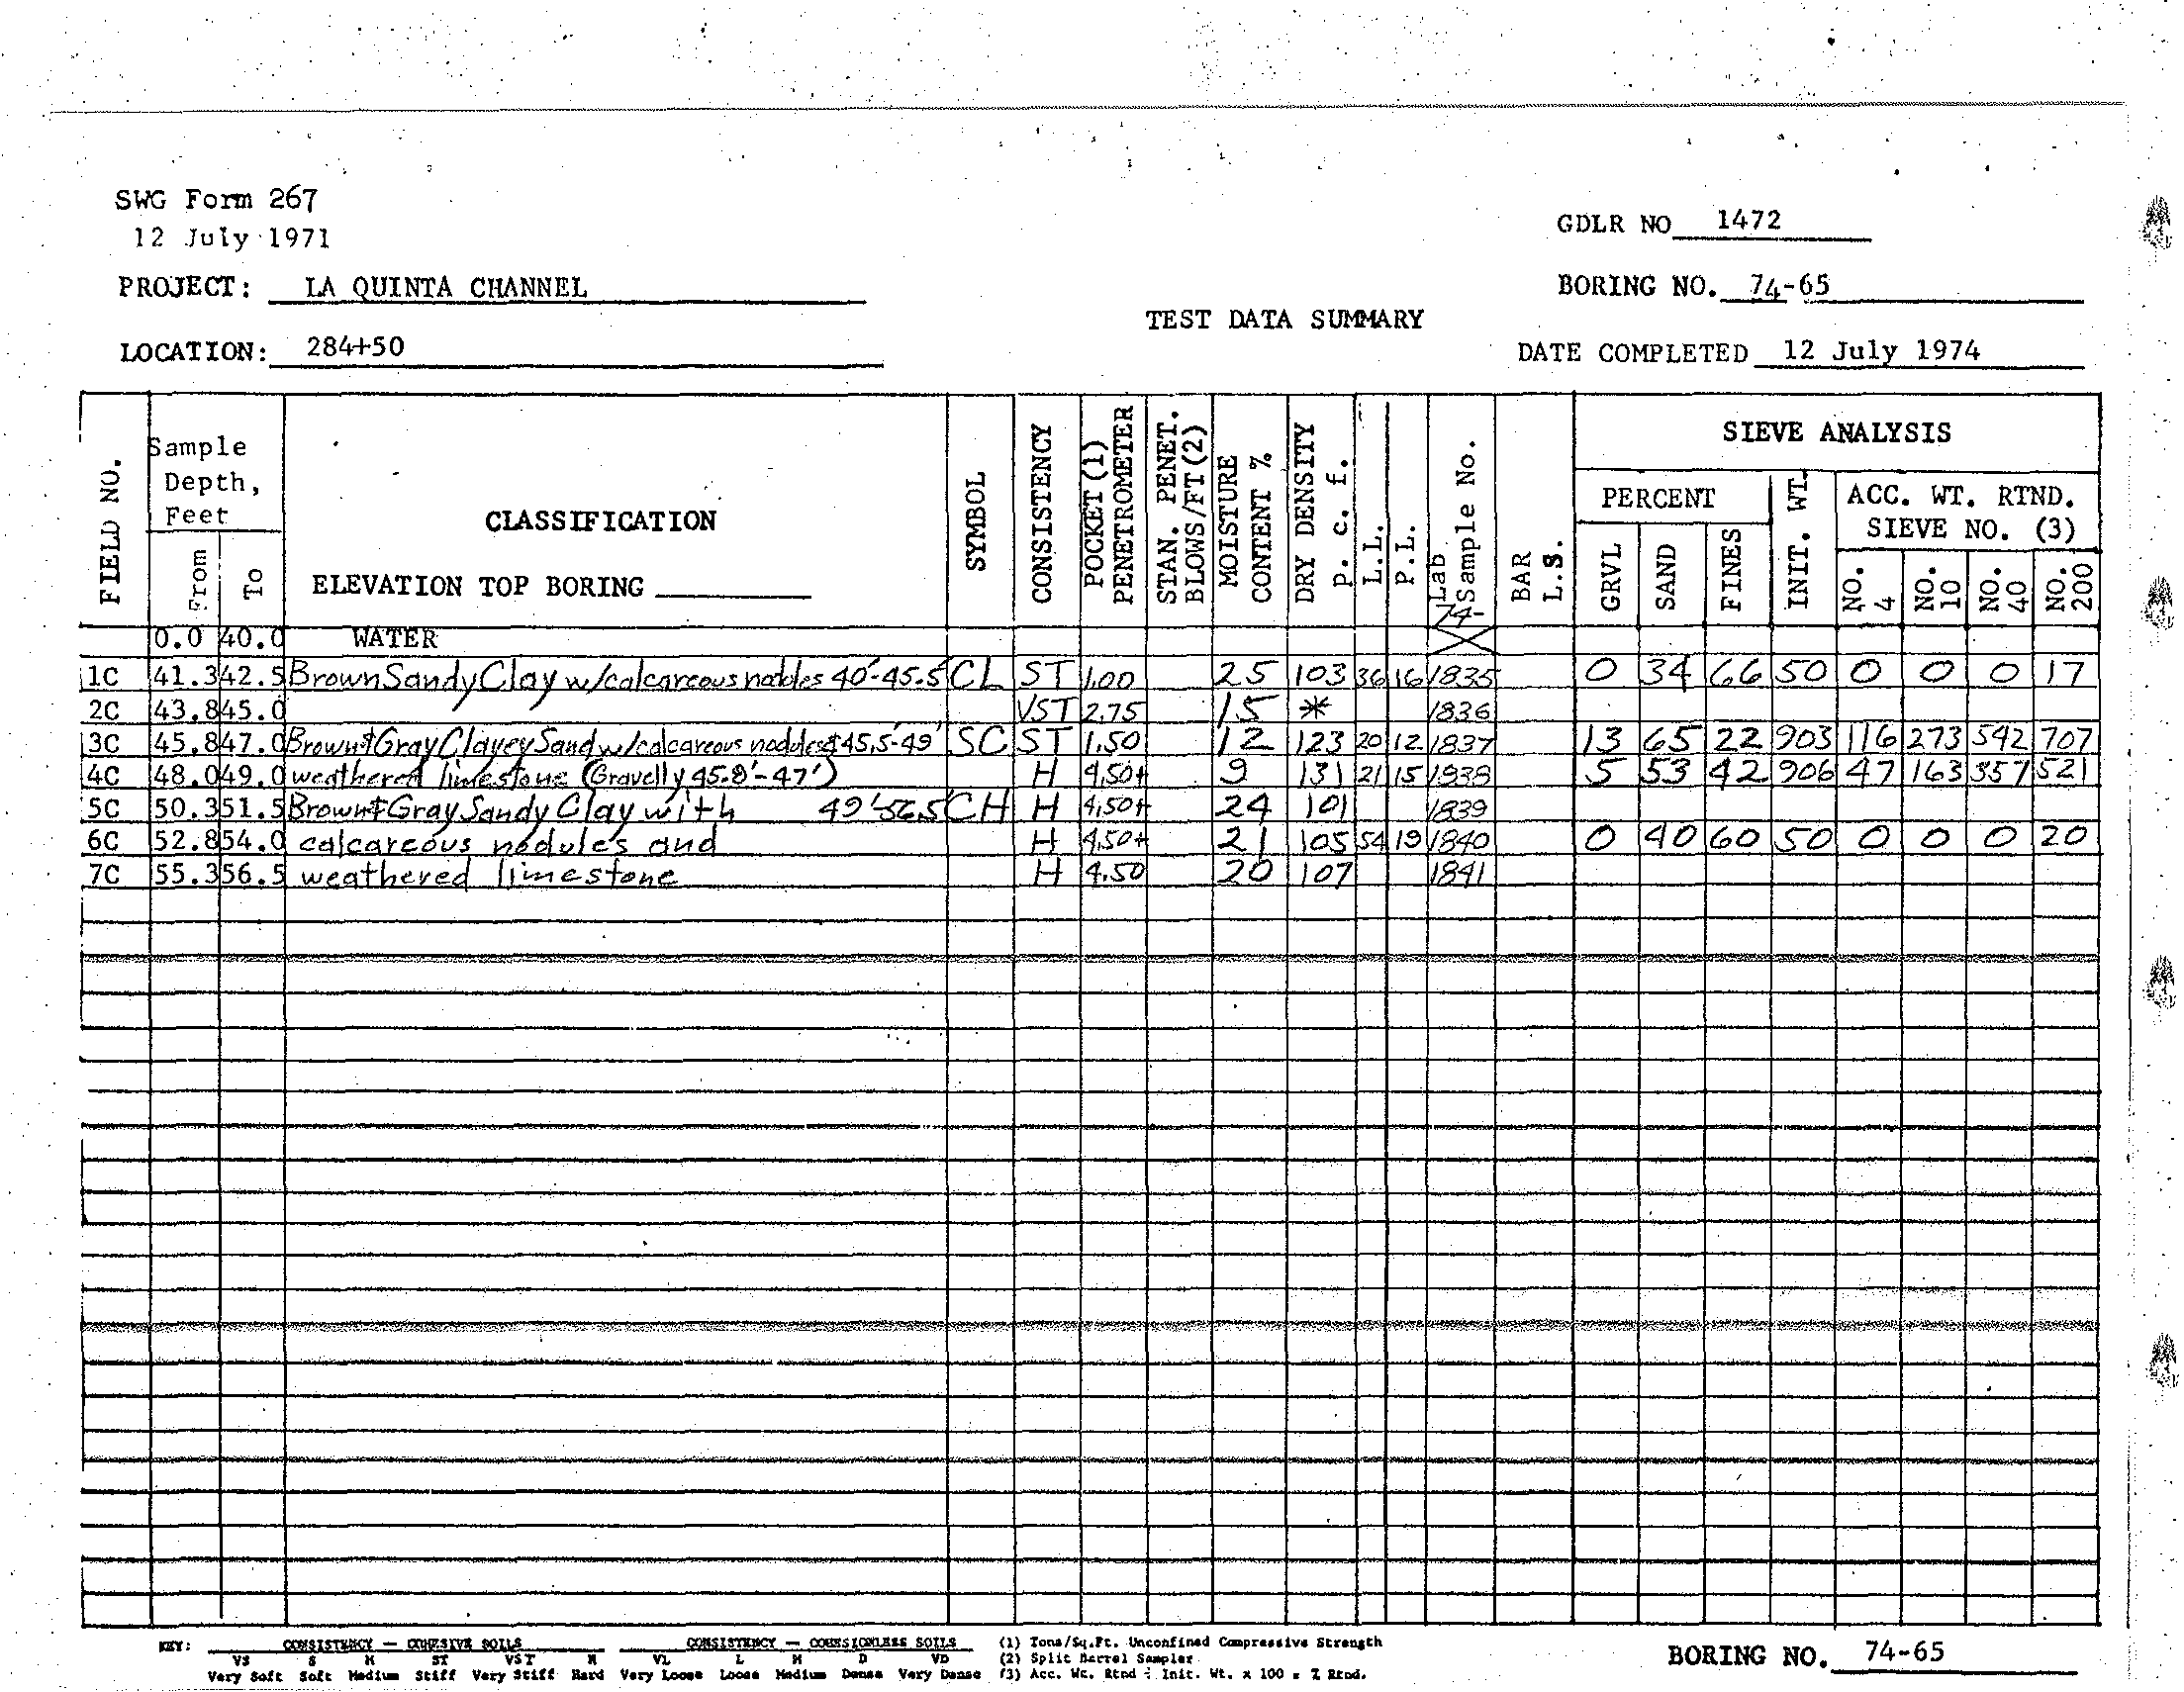 SWG Form 267
12 July 1971
GDLR NO 1472
PROJECT: LA QUINTA CHANNEL
BORING NO. 74-65
TEST DATA SUMMARY
LOCATION: 284+50
DATE COMPLETED 12 July 1974
FIELD NO. Sample Depth, Feet From To CLASSIFICATION ELEVATION TOP BORING SYMBOL CONSISTENCY POCKET (1) PENETROMETER STAN. PENET. BLOWS/FT (2) MOISTURE CONTENT % DRY DENSITY p. c. f. L.L. P.L. Lab Sample No. 74- BAR L.S. SIEVE ANALYSIS PERCENT GRVL SAND FINES INIT. WT. ACC. WT. RTND. SIEVE NO. (3) NO. 4 NO. 10 NO. 40 NO. 200
0.0 40.0 WATER
1C 41.3 42.5 Brown Sandy Clay w/calcareous nodules 40'-45.5' CL ST 1.00 25 103 36 16 1835 0 34 66 50 0 0 0 17
2C 43.8 45.0 VST 2.75 15 * 1836
3C 45.8 47.0 Brown & Gray Clayey Sand w/calcareous nodules & 45.5'-49' SC ST 1.50 12 123 20 12 1837 13 65 22 903 116 273 542 707
4C 48.0 49.0 weathered limestone (Gravelly 45.8'-47') H 4.50+ 9 131 21 15 1838 5 53 42 906 47 163 357 521
5C 50.3 51.5 Brown & Gray Sandy Clay with 49'-56.5' CH H 4.50+ 24 101 1839
6C 52.8 54.0 calcareous nodules and H 4.50+ 21 105 54 19 1840 0 40 60 50 0 0 0 20
7C 55.3 56.5 weathered limestone H 4.50 20 107 1841
KEY: CONSISTENCY — COHESIVE SOILS CONSISTENCY — COHESIONLESS SOILS (1) Tons/Sq.Ft. Unconfined Compressive Strength
VS S M ST VST H VL L M D VD (2) Split Barrel Sampler
Very Soft Soft Medium Stiff Very Stiff Hard Very Loose Loose Medium Dense Very Dense (3) Acc. Wt. Rtnd ÷ Init. Wt. x 100 = % Rtnd.
BORING NO. 74-65